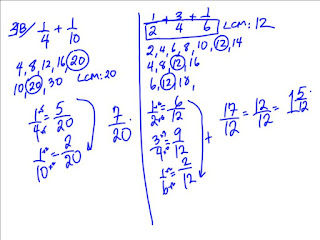 3B/ 1/4 + 1/10
4, 8, 12, 16, 20
10, 20, 30 LCM: 20
1/4 = 5/20
1/10 = 2/20
7/20
1/2 + 3/4 + 1/6 LCM: 12
2, 4, 6, 8, 10, 12, 14
4, 8, 12, 16
6, 12, 18,
1/2 = 6/12
3/4 = 9/12
1/6 = 2/12
+ 17/12 = 12/12 = 1 5/12